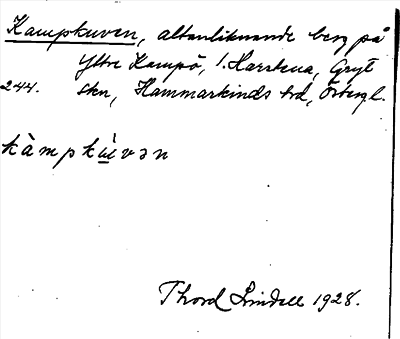 Kampkuven, altanliknande berg på
Yttre Kampö, 1. Harstena, Gryt
244. skn, Hammarkinds hd, Östergl.
kàmpkúvən
Thord Lindell 1928.